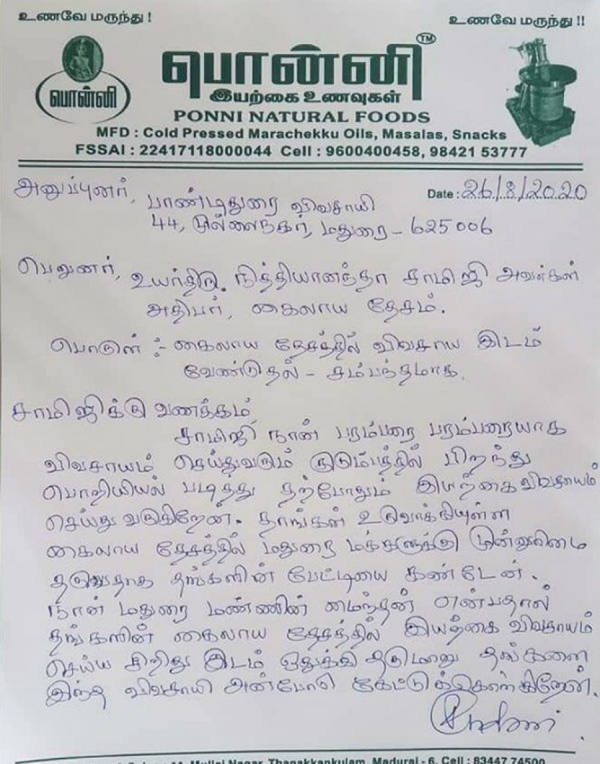 உணவே மருந்து ! உணவே மருந்து !!
பொன்னி TM
பொன்னி
இயற்கை உணவுகள்
PONNI NATURAL FOODS
MFD : Cold Pressed Marachekku Oils, Masalas, Snacks
FSSAI : 22417118000044 Cell : 9600400458, 98421 53777
அனுப்புனர், Date : 26/8/2020
பாண்டிதுரை விவசாயி
44, முல்லைநகர், மதுரை - 625006
பெறுனர்,
உயர்திரு. நித்தியானந்தா சாமிஜி அவர்கள்
அதிபர், கைலாய தேசம்.
பொருள் :- கைலாய தேசத்தில் விவசாய இடம்
வேண்டுதல் - சம்பந்தமாக.
சாமிஜிக்கு வணக்கம்
சாமிஜி நான் பரம்பரை பரம்பரையாக
விவசாயம் செய்துவரும் குடும்பத்தில் பிறந்து
பொறியியல் படித்து தற்போதும் இயற்கை விவசாயம்
செய்து வருகிறேன். தாங்கள் உருவாக்கியுள்ள
கைலாய தேசத்தில் மதுரை மக்களுக்கு முன்னுரிமை
தருவதாக தங்களின் பேட்டியை கண்டேன்.
நான் மதுரை மண்ணின் மைந்தன் என்பதால்
தங்களின் கைலாய தேசத்தில் இயற்கை விவசாயம்
செய்ய சிறிது இடம் ஒதுக்கி தருமாறு தங்களை
இந்த விவசாயி அன்போடு கேட்டுக்கொள்கிறேன்.
Mullai Nagar, Thanakkankulam, Madurai - 6. Cell : 83447 74500